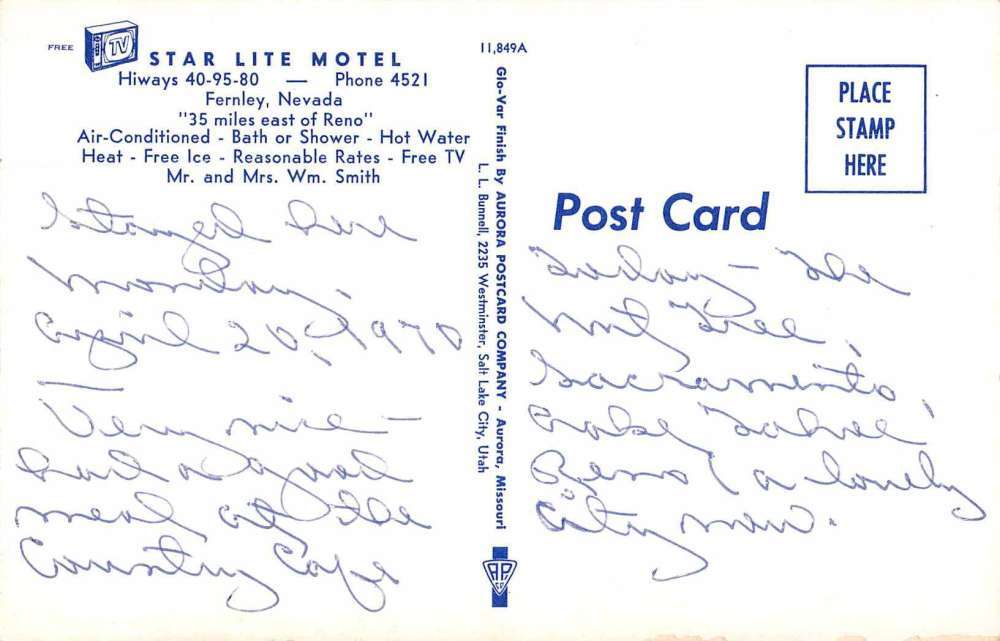 FREE
TV
STAR LITE MOTEL
Hiways 40-95-80 — Phone 4521
Fernley, Nevada
"35 miles east of Reno"
Air-Conditioned - Bath or Shower - Hot Water
Heat - Free Ice - Reasonable Rates - Free TV
Mr. and Mrs. Wm. Smith
Stayed here
Monday,
April 20, 1970
Very nice —
had a good
meal at the
Country Cafe
11,849A
Glo-Var Finish By AURORA POSTCARD COMPANY - Aurora, Missouri
L. L. Bunnell, 2235 Westminster, Salt Lake City, Utah
A.P. CO.
PLACE
STAMP
HERE
Post Card
Today — The
Nut Tree,
Sacramento,
Lake Tahoe,
Reno (a lovely
city now.